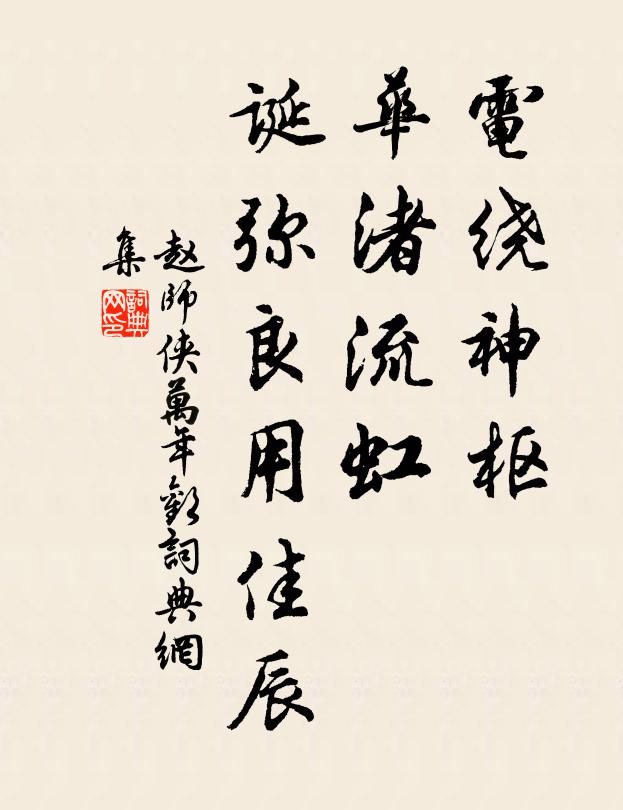 電绕神枢
華渚流虹
诞弥良用佳辰
赵師侠萬年歡詞典網
集
詞典网印